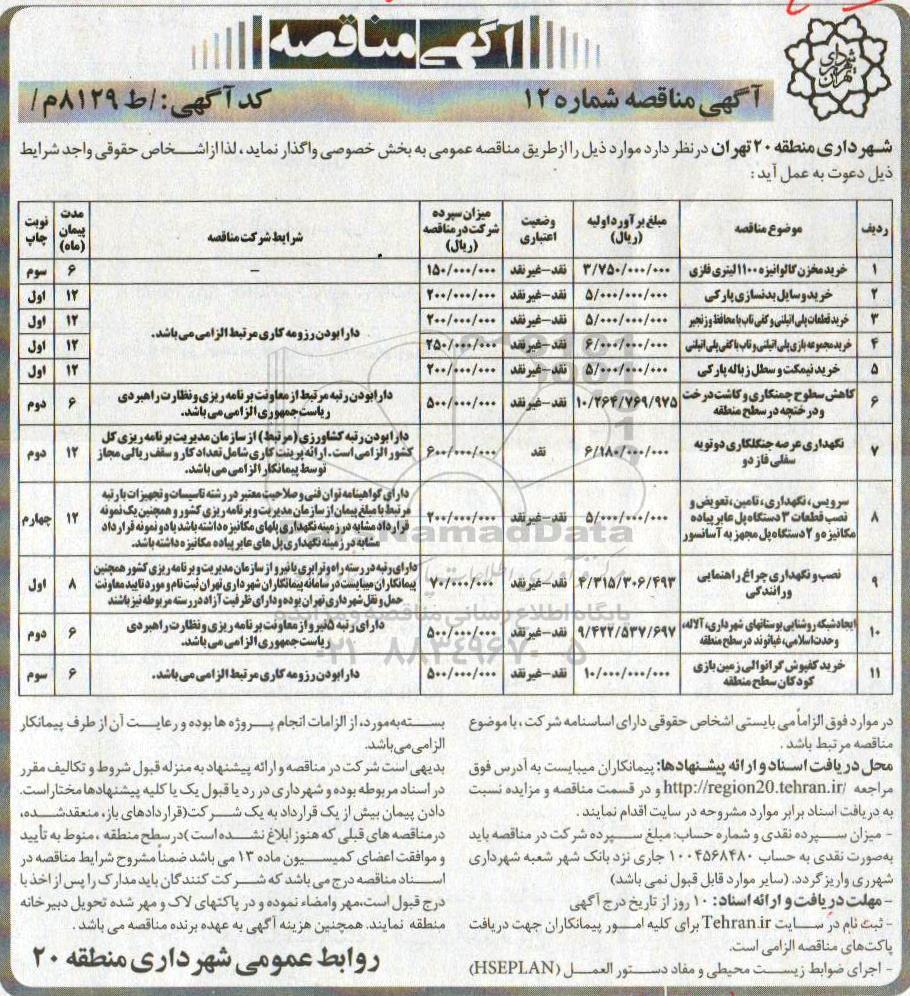 آگهی مناقصه
شهرداری تهران
آگهی مناقصه شماره ۱۲
کد آگهی: /ط ۸۱۲۹م/
شهرداری منطقه ۲۰ تهران درنظر دارد موارد ذیل را ازطریق مناقصه عمومی به بخش خصوصی واگذار نماید، لذا ازاشخاص حقوقی واجد شرایط
ذیل دعوت به عمل آید:
ردیف موضوع مناقصه مبلغ برآورد اولیه (ریال) وضعیت اعتباری میزان سپرده شرکت در مناقصه (ریال) شرایط شرکت مناقصه مدت پیمان (ماه) نوبت چاپ
۱ خرید مخزن گالوانیزه ۱۱۰۰ لیتری فلزی ۳/۷۵۰/۰۰۰/۰۰۰ نقد-غیرنقد ۱۵۰/۰۰۰/۰۰۰ – ۶ سوم
۲ خرید وسایل بدنسازی پارکی ۵/۰۰۰/۰۰۰/۰۰۰ نقد-غیرنقد ۲۰۰/۰۰۰/۰۰۰ ۱۲ اول
۳ خرید قطعات پلی اتیلنی و کفی تاب با محافظ و زنجیر ۵/۰۰۰/۰۰۰/۰۰۰ نقد-غیرنقد ۲۰۰/۰۰۰/۰۰۰ دارابودن رزومه کاری مرتبط الزامی می باشد. ۱۲ اول
۴ خرید مجموعه بازی پلی اتیلنی و تاب با کفی پلی اتیلنی ۶/۰۰۰/۰۰۰/۰۰۰ نقد-غیرنقد ۲۵۰/۰۰۰/۰۰۰ ۱۲ اول
۵ خرید نیمکت و سطل زباله پارکی ۵/۰۰۰/۰۰۰/۰۰۰ نقد-غیرنقد ۲۰۰/۰۰۰/۰۰۰ ۱۲ اول
۶ کاهش سطوح چمنکاری و کاشت درخت و درختچه در سطح منطقه ۱۰/۲۶۴/۷۶۹/۹۷۵ نقد-غیرنقد ۵۰۰/۰۰۰/۰۰۰ دارابودن رتبه مرتبط از معاونت برنامه ریزی و نظارت راهبردی ریاست جمهوری الزامی می باشد. ۶ دوم
۷ نگهداری عرصه جنگلکاری دوتویه سفلی فاز دو ۶/۱۸۰/۰۰۰/۰۰۰ نقد ۶۰۰/۰۰۰/۰۰۰ دارا بودن رتبه کشاورزی (مرتبط) از سازمان مدیریت برنامه ریزی کل کشور الزامی است. ارائه پرینت کاری شامل تعداد کار و سقف ریالی مجاز توسط پیمانکار الزامی می باشد. ۱۲ دوم
۸ سرویس، نگهداری، تامین، تعویض و نصب قطعات ۳ دستگاه پل عابر پیاده مکانیزه و ۲ دستگاه پل مجهز به آسانسور ۵/۰۰۰/۰۰۰/۰۰۰ نقد-غیرنقد ۲۰۰/۰۰۰/۰۰۰ دارای گواهینامه توان فنی و صلاحیت معتبر در رشته تاسیسات و تجهیزات با رتبه مرتبط با مبلغ پیمان از سازمان مدیریت و برنامه ریزی کشور و همچنین یک نمونه قرارداد مشابه در زمینه نگهداری پلهای مکانیزه داشته باشد یا دو نمونه قرارداد مشابه در زمینه نگهداری پل های عابر پیاده مکانیزه داشته باشد. ۱۲ چهارم
۹ نصب و نگهداری چراغ راهنمایی ورانندگی ۴/۳۱۵/۳۰۶/۴۹۳ نقد-غیرنقد ۷۰/۰۰۰/۰۰۰ دارای رتبه در رسته راه و ترابری یا نیرو از سازمان مدیریت و برنامه ریزی کشور همچنین پیمانکاران میبایست در سامانه پیمانکاران شهرداری تهران ثبت نام و مورد تایید معاونت حمل و نقل شهرداری تهران بوده و دارای ظرفیت آزاد در رسته مربوطه نیز باشند ۸ اول
۱۰ ایجاد شبکه روشنایی بوستانهای شهرداری، آلاله، وحدت اسلامی، غیاثوند در سطح منطقه ۹/۴۲۲/۵۳۷/۶۹۷ نقد-غیرنقد ۵۰۰/۰۰۰/۰۰۰ دارای رتبه ۵ نیرو از معاونت برنامه ریزی و نظارت راهبردی ریاست جمهوری الزامی می باشد. ۶ دوم
۱۱ خرید کفپوش گرانوالی زمین بازی کودکان سطح منطقه ۱۰/۰۰۰/۰۰۰/۰۰۰ نقد-غیرنقد ۵۰۰/۰۰۰/۰۰۰ دارا بودن رزومه کاری مرتبط الزامی می باشد. ۶ سوم
در موارد فوق الزاماً می بایستی اشخاص حقوقی دارای اساسنامه شرکت، با موضوع
مناقصه مرتبط باشد.
محل دریافت اسناد و ارائه پیشنهادها: پیمانکاران میبایست به آدرس فوق
مراجعه http://region20.tehran.ir/ و در قسمت مناقصه و مزایده نسبت
به دریافت اسناد برابر موارد مشروحه در سایت اقدام نمایند.
- میزان سپرده نقدی و شماره حساب: مبلغ سپرده شرکت در مناقصه باید
به‌صورت نقدی به حساب ۱۰۰۴۵۶۸۴۸۰ جاری نزد بانک شهر شعبه شهرداری
شهرری واریز گردد. (سایر موارد قابل قبول نمی باشد)
- مهلت دریافت و ارائه اسناد: ۱۰ روز از تاریخ درج آگهی
- ثبت نام در سایت Tehran.ir برای کلیه امور پیمانکاران جهت دریافت
پاکت‌های مناقصه الزامی است.
- اجرای ضوابط زیست محیطی و مفاد دستور العمل (HSEPLAN)
بسته‌به‌مورد، از الزامات انجام پروژه ها بوده و رعایت آن از طرف پیمانکار
الزامی می‌باشد.
بدیهی است شرکت در مناقصه و ارائه پیشنهاد به منزله قبول شروط و تکالیف مقرر
در اسناد مربوطه بوده و شهرداری در رد یا قبول یک یا کلیه پیشنهادها مختار است.
دادن پیمان بیش از یک قرارداد به یک شرکت(قراردادهای باز، منعقدشده،
درمناقصه های قبلی که هنوز ابلاغ نشده است)در سطح منطقه ، منوط به تأیید
و موافقت اعضای کمیسیون ماده ۱۳ می باشد ضمناً مشروح شرایط مناقصه در
اسناد مناقصه درج می باشد که شرکت کنندگان باید مدارک را پس از اخذ با
درج قبول است،مهر وامضاء نموده و در پاکتهای لاک و مهر شده تحویل دبیرخانه
منطقه نمایند. همچنین هزینه آگهی به عهده برنده مناقصه می باشد.
روابط عمومی شهرداری منطقه ۲۰
ParsNamadData
پایگاه اطلاع رسانی مناقصه و مزایده
۰۲۱-۸۸۳۴۹۶۷۰-۵